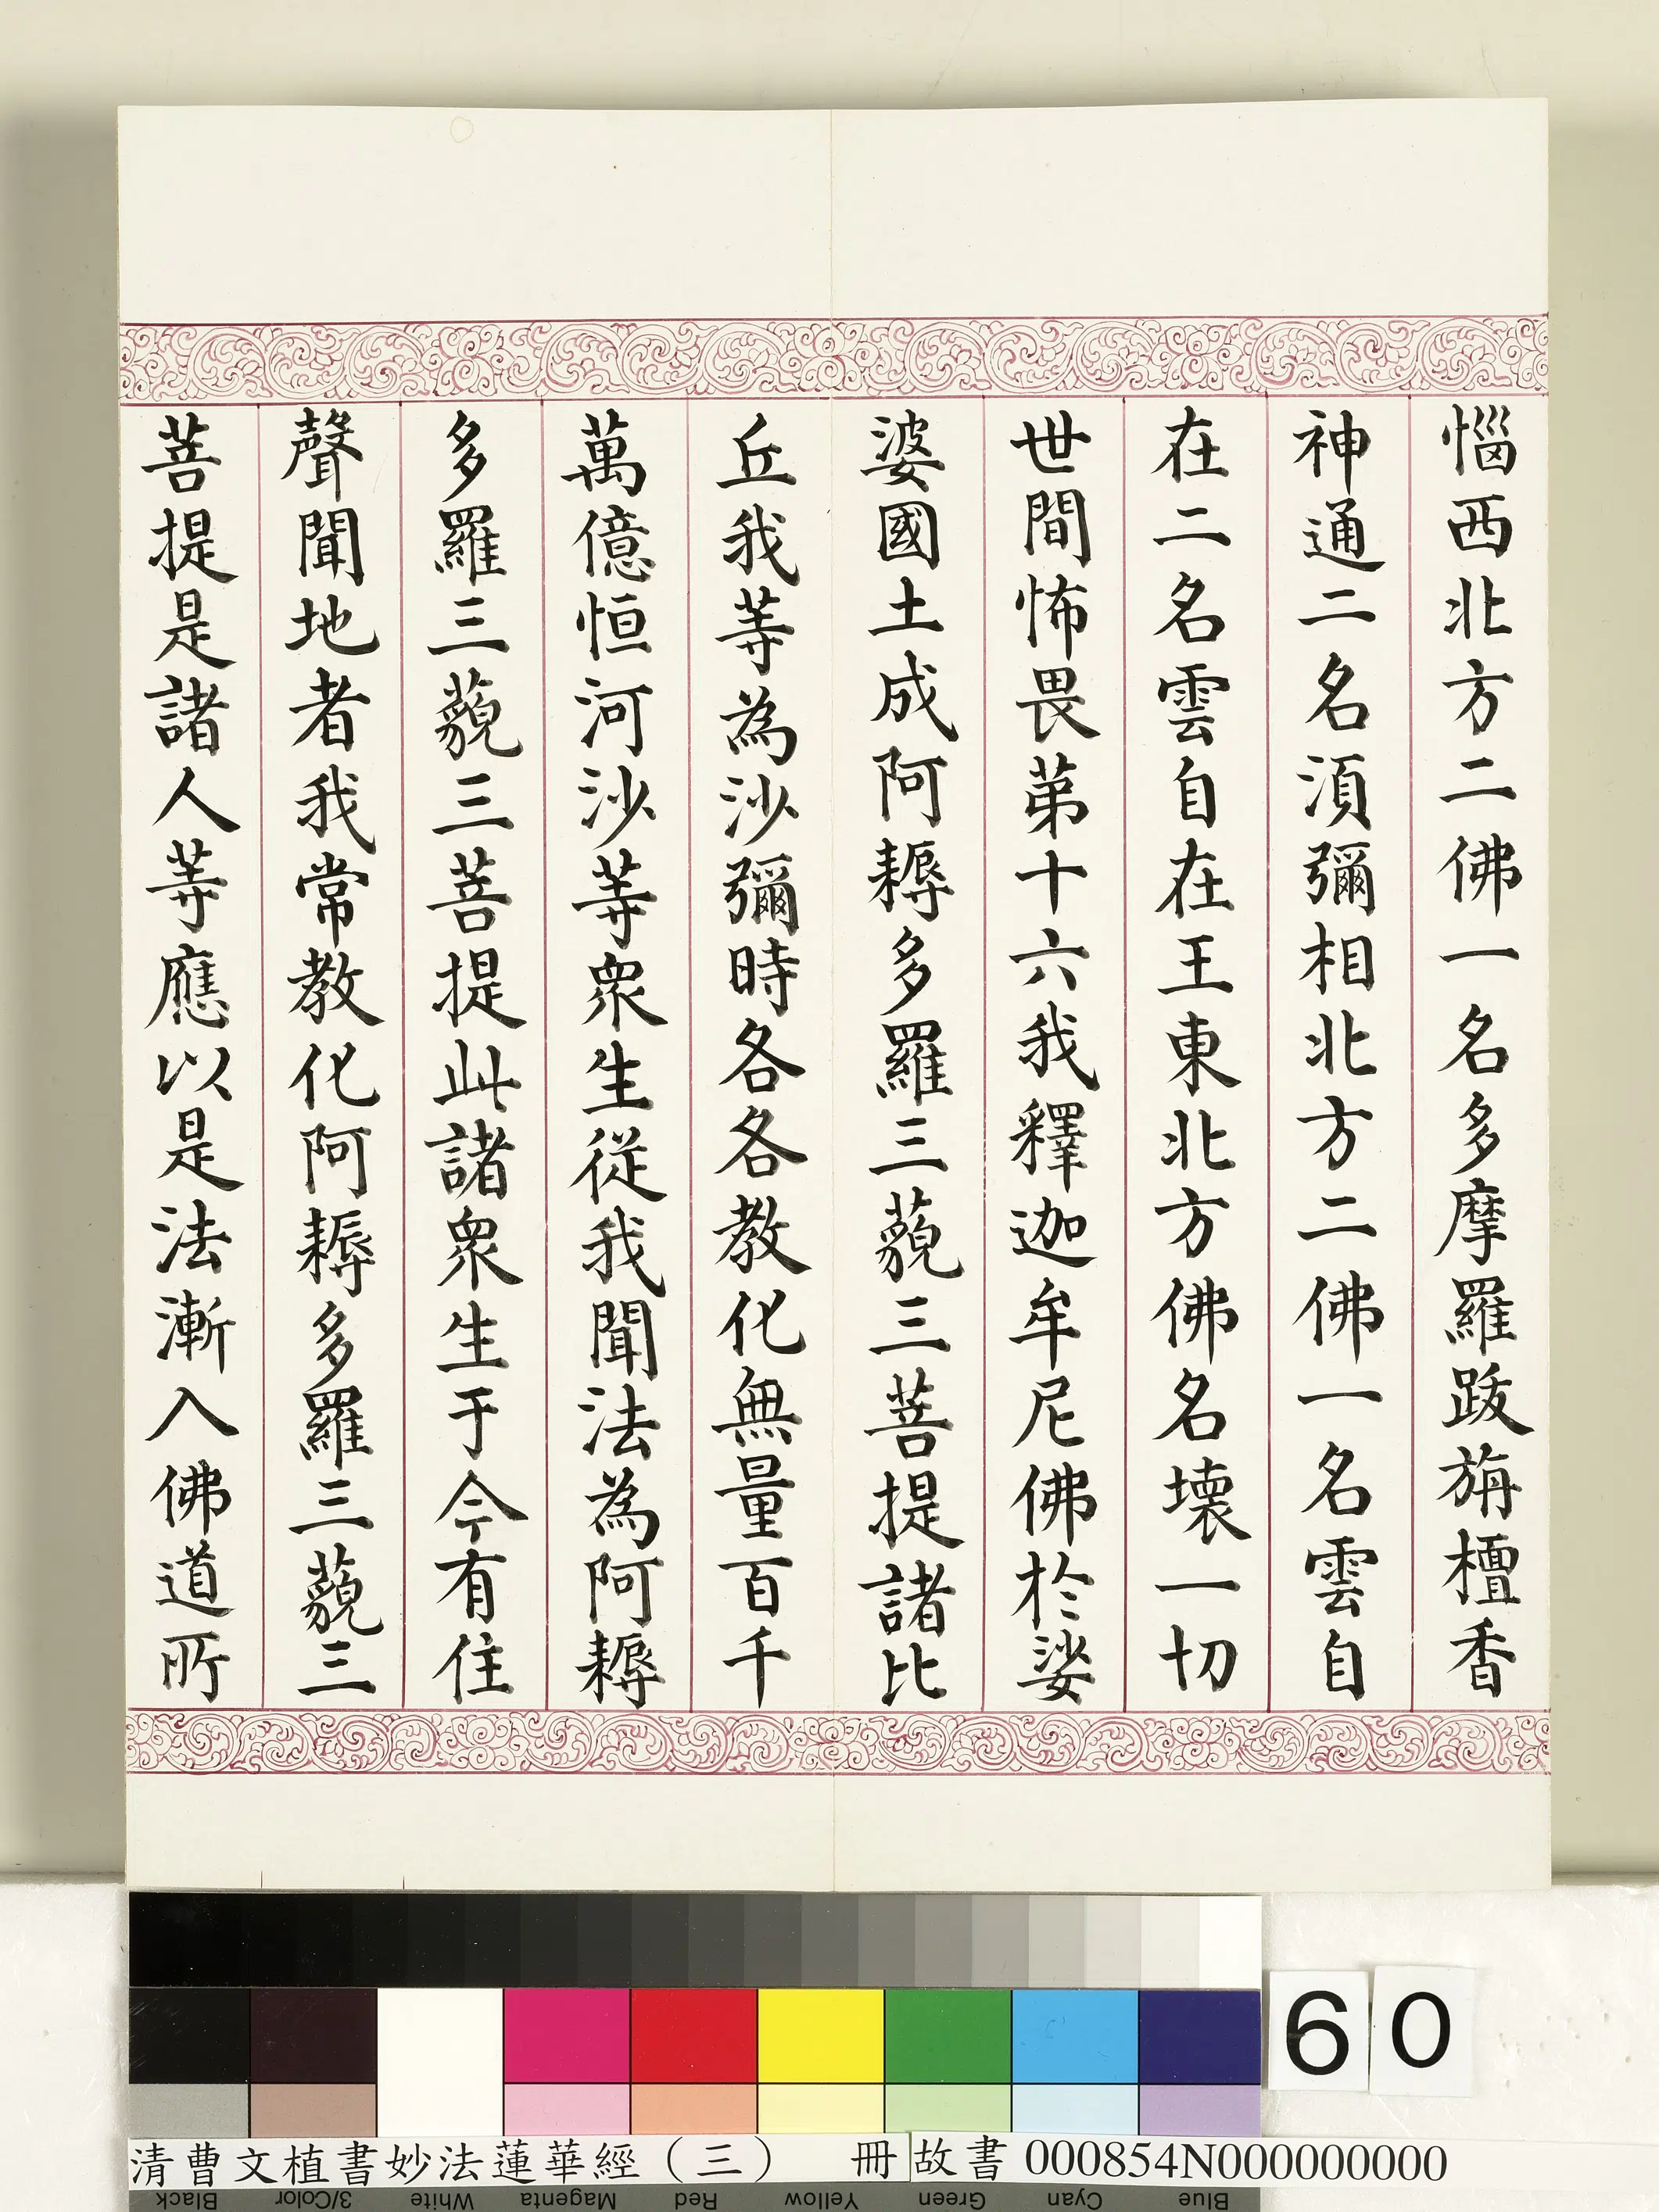 惱西北方二佛一名多摩羅跋旃檀香
神通二名湏彌相北方二佛一名雲自
在二名雲自在王東北方佛名壞一切
世間怖畏苐十六我釋迦牟尼佛於娑
婆國土成阿耨多羅三藐三菩提諸比
丘我等為沙彌時各各教化無量百千
萬億恒河沙等衆生從我聞法為阿耨
多羅三藐三菩提此諸衆生于今有住
聲聞地者我常教化阿耨多羅三藐三
菩提是諸人等應以是法漸入佛道所
60
清曹文植書妙法蓮華經（三） 冊 故書 000854N000000000
Black 3/Color White Magenta Red Yellow Green Cyan Blue